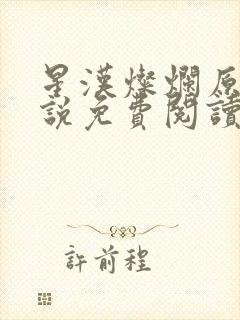 星漢燦爛原
說免費閱讀
許前程